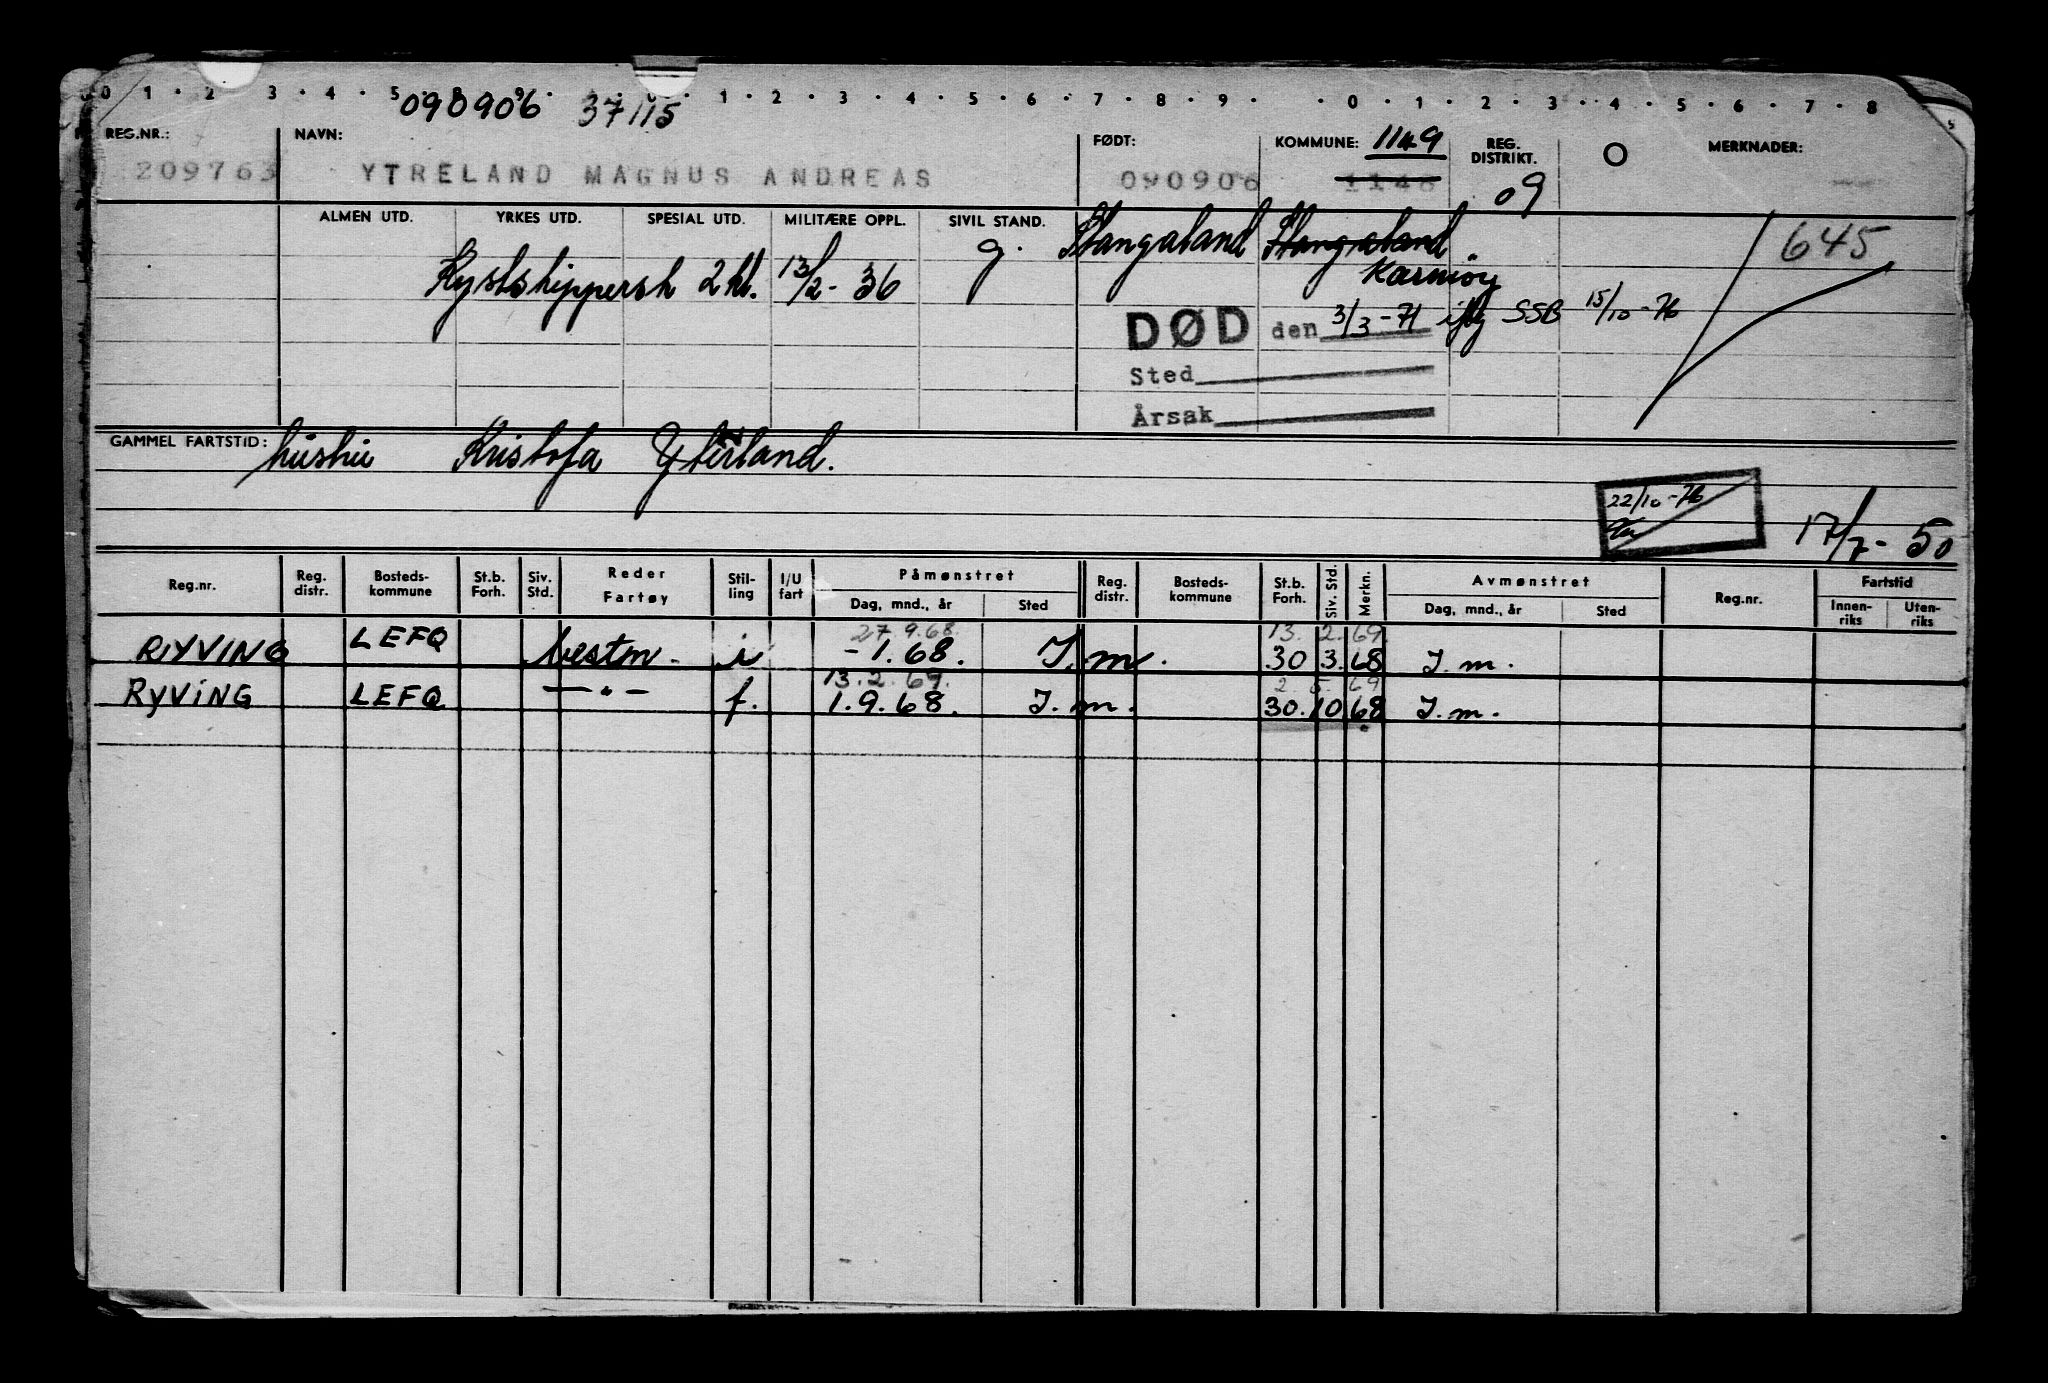 0 · 1 · 2 · 3 · 4 · 5 · 1 · 2 · 3 · 4 · 5 · 6 · 7 · 8 · 9 · · 0 · 1 · 2 · 3 · 4 · 5 · 6 · 7 · 8
090906 37115
REG.NR.: NAVN: FØDT: KOMMUNE: 1149 REG. DISTRIKT. O MERKNADER:
209763 YTRELAND MAGNUS ANDREAS 090906 1146 09
ALMEN UTD. YRKES UTD. SPESIAL UTD. MILITÆRE OPPL. SIVIL STAND.
g. Stangaland Stangaland 645
Kystskippersk 2 kl. 13/2 - 36 Karmöy
DØD den 3/3-71 iflg SSB 15/10-76
Sted
Årsak
GAMMEL FARTSTID: hustru Kristofa Yterland.
22/10-76
17/7-50
Reg.nr. Reg. distr. Bosteds-kommune St.b. Forh. Siv. Std. Reder Fartøy Stil-ling I/U fart Påmønstret Reg. distr. Bosteds-kommune St.b. Forh. Siv. Std. Merkn. Avmønstret Reg.nr. Fartstid
Dag, mnd., år Sted Dag, mnd., år Sted Innen-riks Uten-riks
27.9.68. 13. 2. 69.
RYVING LEFQ bestm. i -1.68. I.m. 30 3. 68 I.m.
13.2.69. 2. 5. 69
RYVING LEFQ —"— f. 1.9.68. I.m. 30. 10 68 I.m.